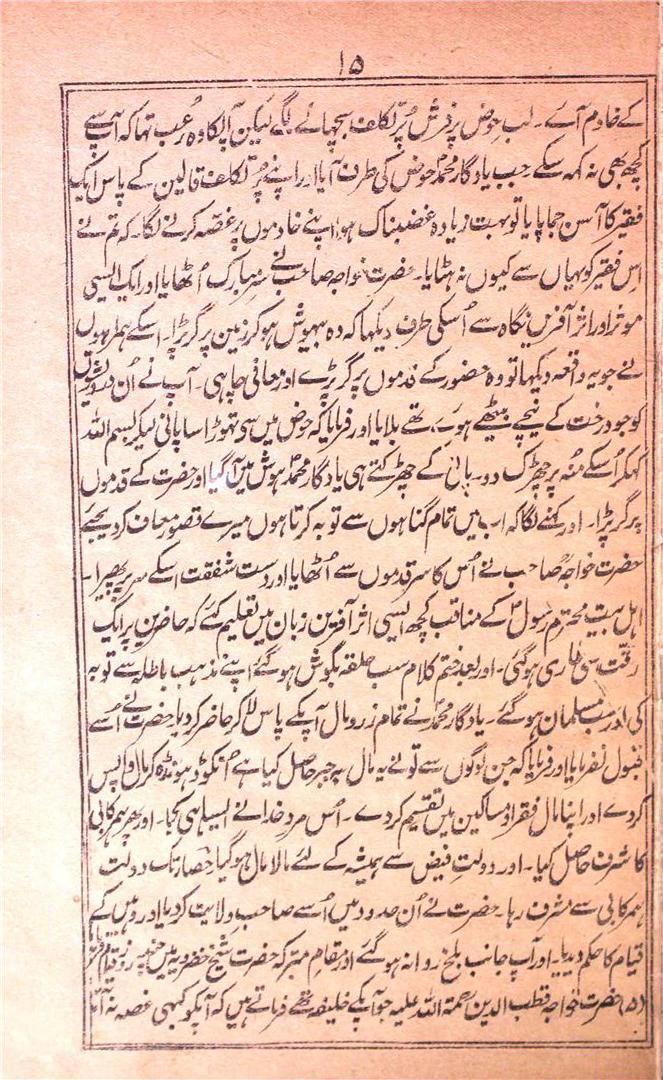 ۱۵
کے خادم آئے۔ لب حوض پر فرش پُر تکلف بچھانے لگے لیکن آپکا وہ رُعب تھا کہ آپ سے
کچھ بھی نہ کہہ سکے جب یادگار محمد حوض کی طرف آیا اور اپنے پُر تکلف قالین کے پاس ایک
فقیر کا آسن جما پایا تو بہت زیادہ غضبناک ہوا اپنے خادموں پر غصہ کرنے لگا۔ کہ تم نے
اِس فقیر کو یہاں سے کیوں نہ ہٹایا۔ حضرت خواجہ صاحب نے سر مبارک اُٹھایا اور ایک ایسی
موثر اور اثر آفریں نگاہ سے اُسکی طرف دیکھا کہ وہ بیہوش ہو کر زمین پر گر پڑا۔ اسکے ہمراہیوں
نے جو یہ واقعہ دیکھا تو وہ حضور کے قدموں پر گر پڑے اور معافی چاہی۔ آپ نے اُن درویش
کو جو درخت کے نیچے بیٹھے ہوئے تھے بلایا اور فرمایا کہ حوض میں سے تھوڑا سا پانی لیکر بسم اللہ
کہکر اُسکے منہ پر چھڑک دو۔ پانی کے چھڑکتے ہی یادگار محمد ہوش میں آ گیا اور حضرت کے قدموں
پر گر پڑا۔ اور کہنے لگا کہ اب میں تمام گناہوں سے توبہ کرتا ہوں میرے قصور معاف کر دیجئے
حضرت خواجہ صاحب نے اُس کا سر قدموں سے اُٹھایا اور دست شفقت اسکے سر پر پھیرا۔
اہل بیت محترم رسولؐ کے مناقب کچھ ایسی اثر آفرین زبان میں تعلیم کئے کہ حاضرین پر ایک
رقت سی طاری ہو گئی۔ اور بعد ختم کلام سب حلقہ بگوش ہو گئے اپنے مذہب باطلہ سے توبہ
کی اور سب مسلمان ہو گئے۔ یادگار محمد نے تمام زر و مال آپکے پاس لا کر حاضر کر دیا حضرت نے اُسے
قبول نفرمایا اور فرمایا کہ جن لوگوں سے تو نے یہ مال بہ جبر حاصل کیا ہے اُنکو ڈھونڈھ کر مال واپس
کر دے اور اپنا مال فقرا و مساکین میں تقسیم کر دے۔ اُس مرد خدا نے ایسا ہی کیا۔ اور پھر ہمرکابی
کا شرف حاصل کیا۔ اور دولت فیض سے ہمیشہ کے لئے مالا مال ہو گیا حصار تک دولت
ہمرکابی سے مشرف رہا۔ حضرت نے اُن حدود میں اُسے صاحب ولایت کر دیا اور وہیں کے
قیام کا حکم دیدیا۔ اور آپ جانب بلخ روانہ ہو گئے اور بمقام متبرکہ حضرت شیخ خضرویہ میں چند روز قیام
(۵) حضرت خواجہ قطب الدین رحمۃ اللہ علیہ جو آپکے خلیفہ تھے فرماتے ہیں کہ آپکو کبھی غصہ نہ آتا